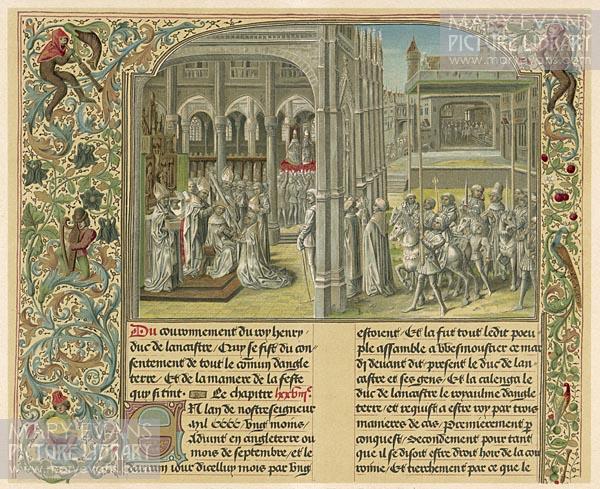 MARY EVANS
PICTURE LIBRARY
Du couronnement du roy henry /
duc de lancastre / Quy se fist du con-
sentement de tout le commun dangle
terre / Et de la maniere de la feste
quy si tint. Le chapitre
En lan de nostreseigneur
mil CCCC vng moins /
Aduint en angleterre ou
mois de septembre / et le
iour dicelluy mois par vng
estoient / Et la fut tout ledit peu-
ple assamble a wesmoustier ce mar
dj deuant dit present le duc de lan-
castre et ses gens / Et la calenga le
duc de lancastre le royaulme dangle
terre / et requist a estre roy par trois
manieres de cas / Premierement p
conquest / Secondement pour tant
que il se disoit estre droit hoir de la cou
ronne / Et tierchement par ce que le
MARY EVANS
PICTURE LIBRARY
www.maryevans.com